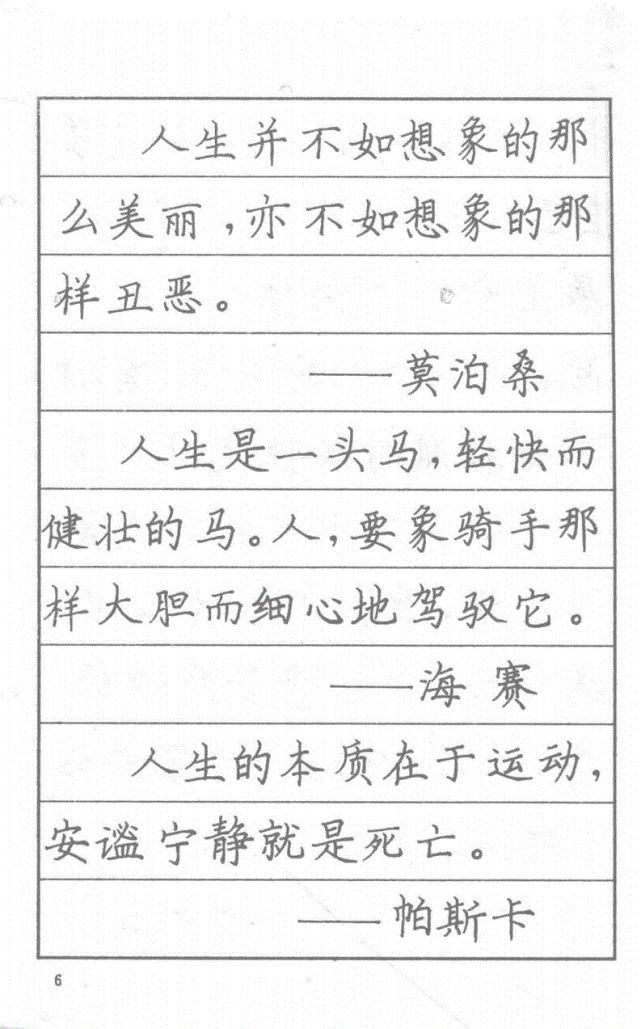 人生并不如想象的那
么美丽,亦不如想象的那
样丑恶。
——莫泊桑
人生是一头马,轻快而
健壮的马。人,要象骑手那
样大胆而细心地驾驭它。
——海赛
人生的本质在于运动,
安谧宁静就是死亡。
——帕斯卡
6